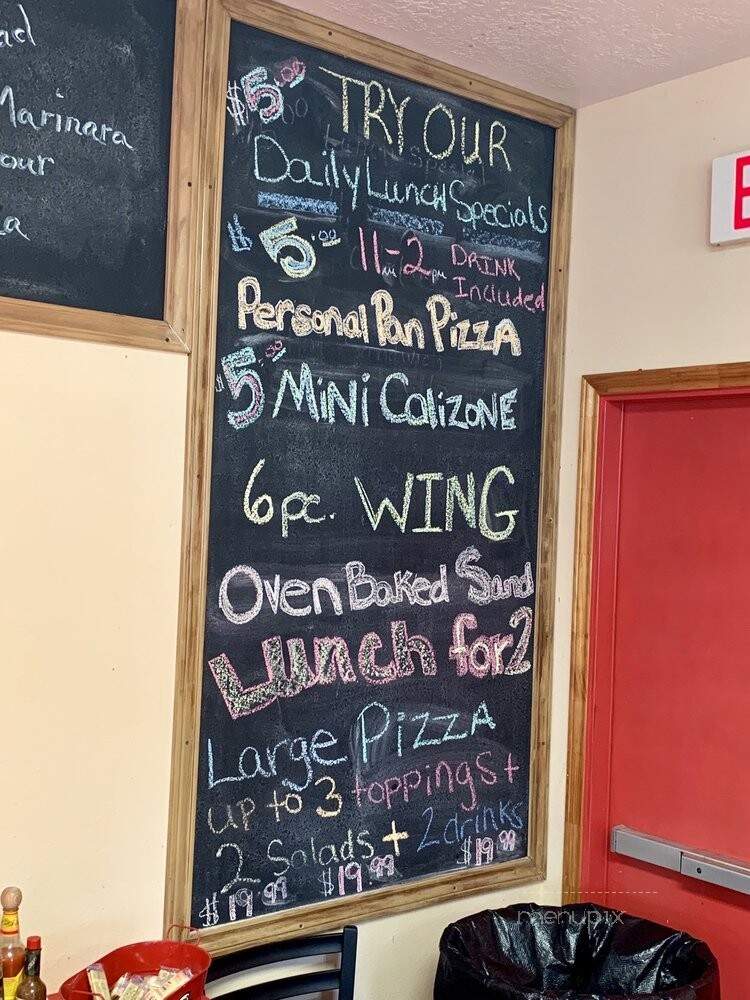 ad
Marinara
our
a
$5.00 TRY OUR
Daily Lunch Specials
$5.00 11am-2pm DRINK
Included
Personal Pan Pizza
$5.00 Mini Calizone
6pc. WING
Oven Baked Sand
Lunch for 2
Large Pizza
up to 3 toppings +
2 Salads + 2 drinks
$19.99 $19.99 $19.99
E
menupix